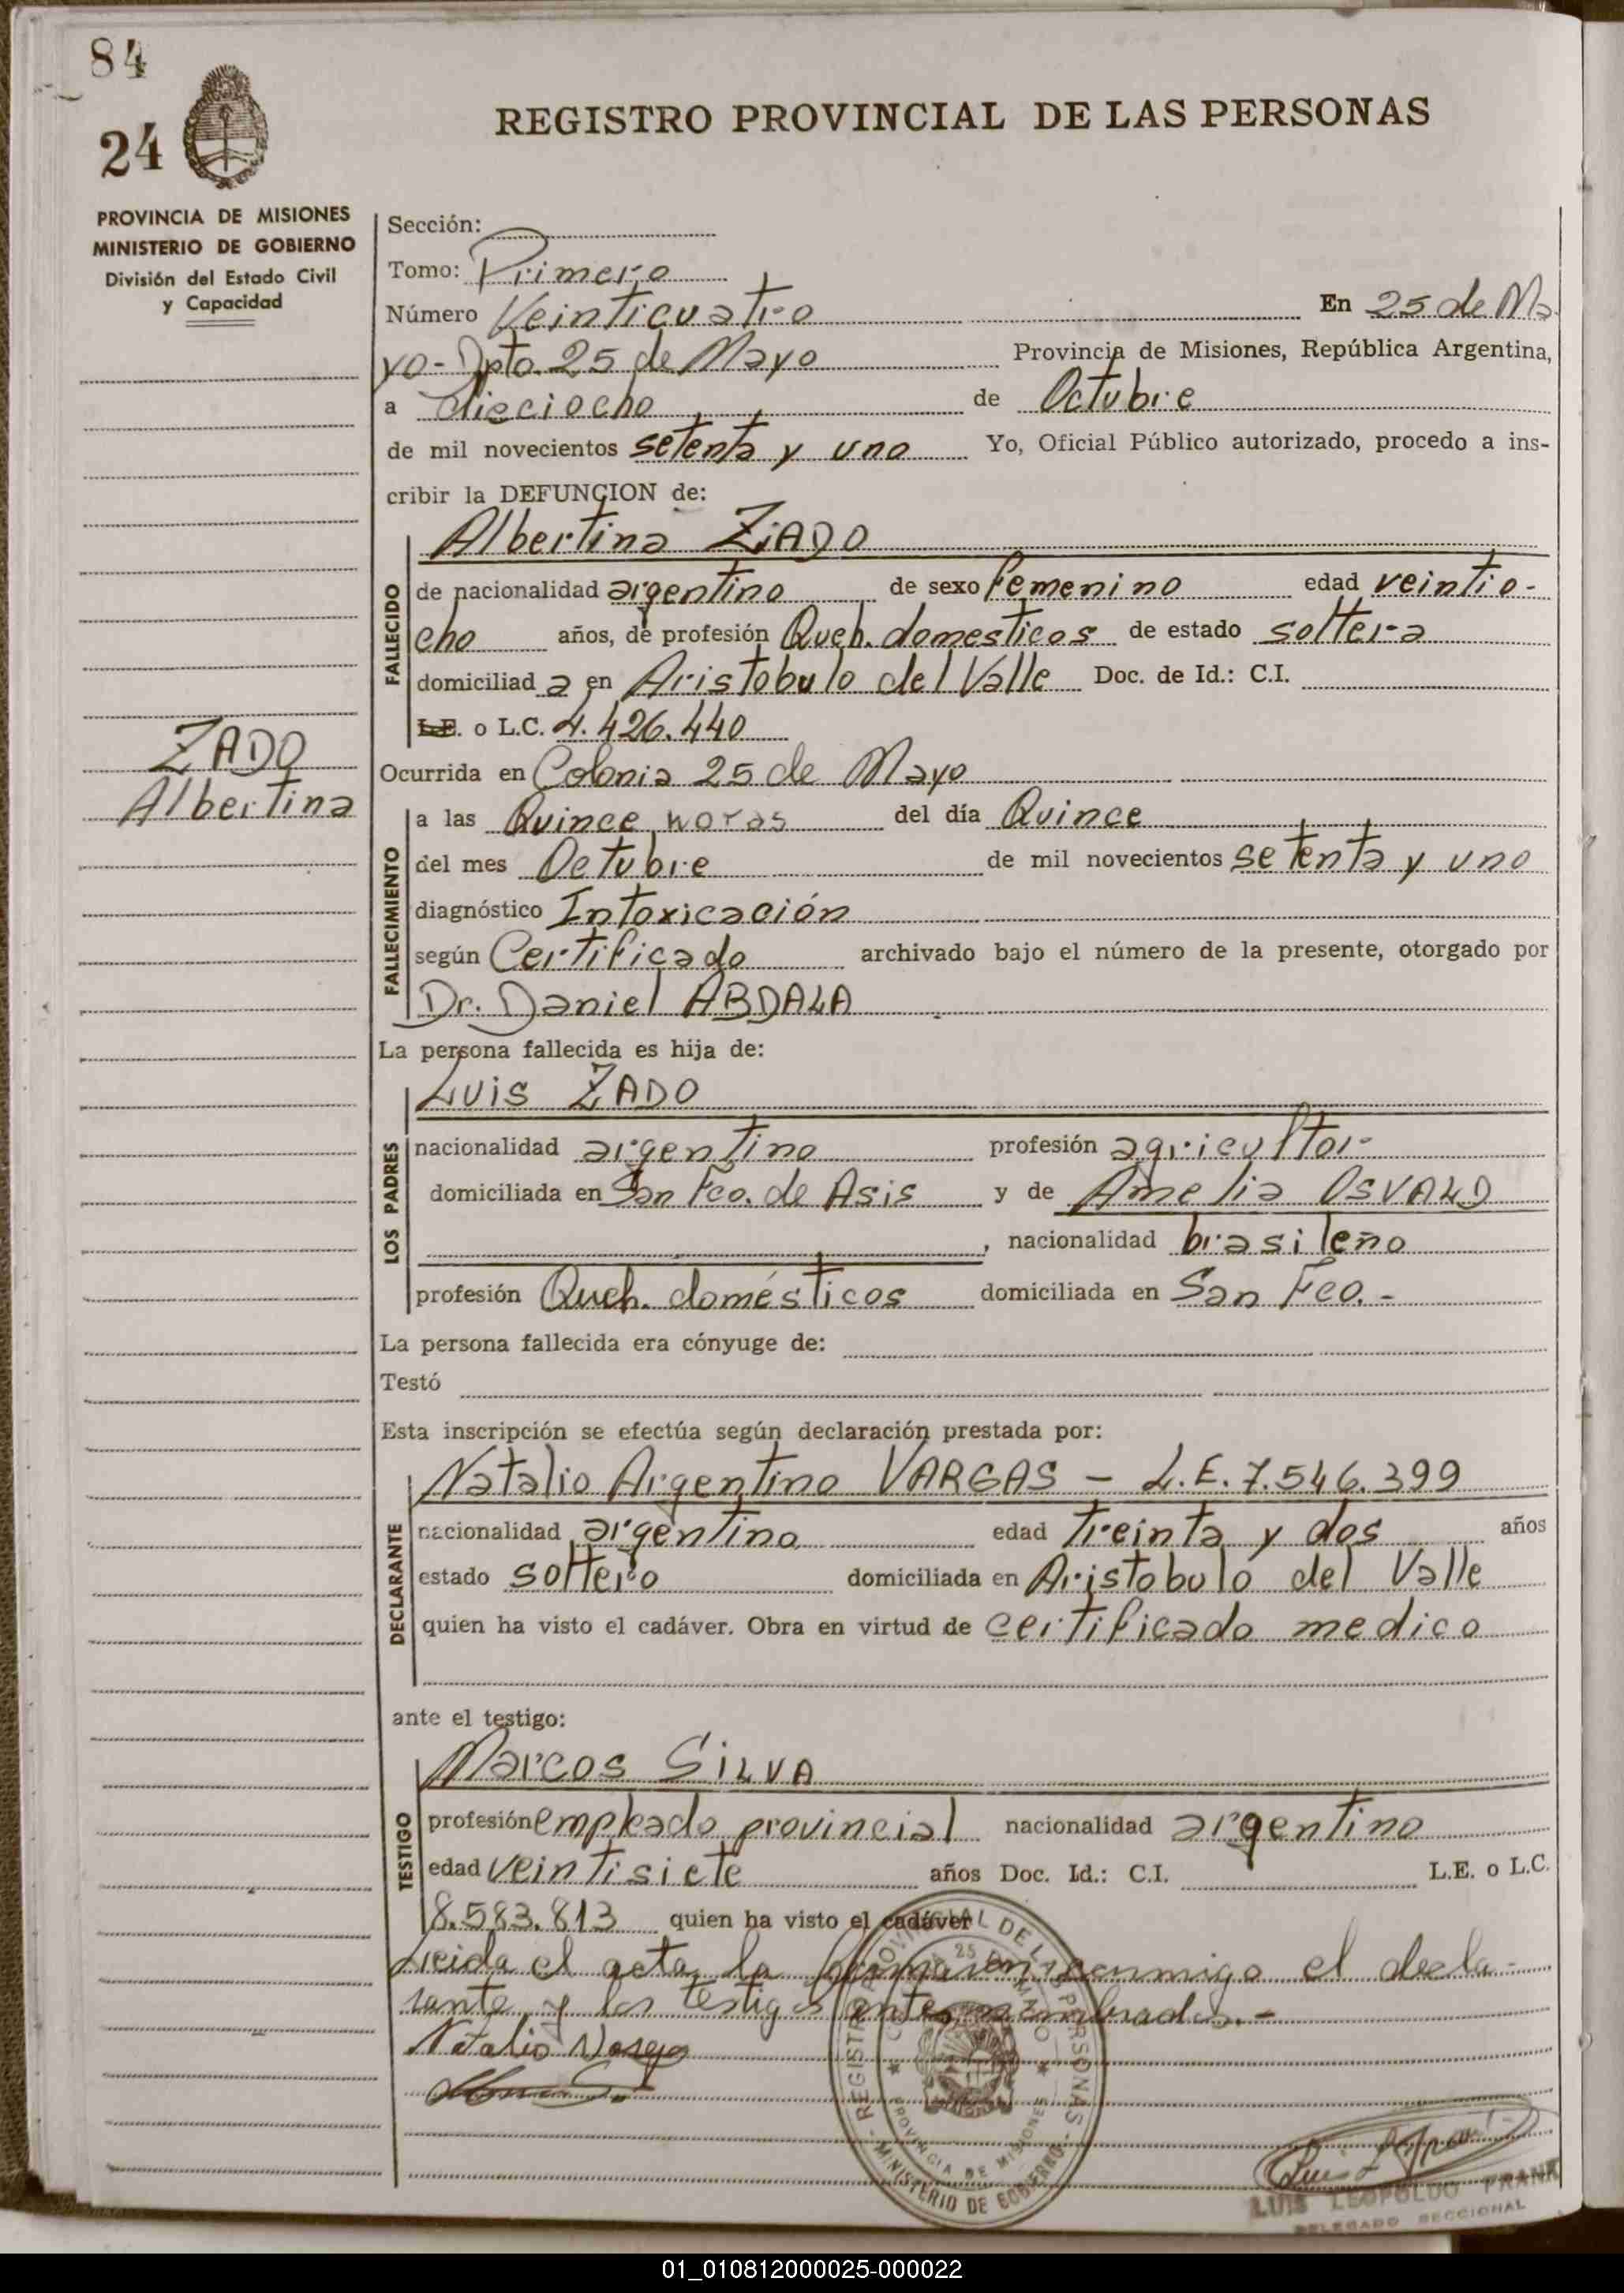 84
24
REGISTRO PROVINCIAL DE LAS PERSONAS
PROVINCIA DE MISIONES
MINISTERIO DE GOBIERNO
División del Estado Civil
y Capacidad
Sección:
Tomo: Primero
Número Veinticuatro En 25 de Ma
yo - Dpto. 25 de Mayo Provincia de Misiones, República Argentina,
a dieciocho de Octubre
de mil novecientos setenta y uno Yo, Oficial Público autorizado, procedo a ins-
cribir la DEFUNCION de:
Albertina ZiADO
FALLECIDO
de nacionalidad argentino de sexo femenino edad veintio-
cho años, de profesión Queh. domesticos de estado soltera
domiciliad a en Aristobulo del Valle Doc. de Id.: C.I.
L.E. o L.C. 4.426.440
ZADO
Albertina
Ocurrida en Colonia 25 de Mayo
FALLECIMIENTO
a las Quince horas del día Quince
del mes Octubre de mil novecientos setenta y uno
diagnóstico Intoxicación
según Certificado archivado bajo el número de la presente, otorgado por
Dr. Daniel ABDALA
La persona fallecida es hija de:
Luis ZADO
LOS PADRES
nacionalidad argentino profesión agricultor
domiciliada en San Fco. de Asis y de Amelia OSVALD
, nacionalidad brasileño
profesión Queh. domésticos domiciliada en San Fco. -
La persona fallecida era cónyuge de:
Testó
Esta inscripción se efectúa según declaración prestada por:
Natalio Argentino VARGAS - L.E. 7.546.399
DECLARANTE
nacionalidad argentino edad treinta y dos años
estado soltero domiciliada en Aristobulo del Valle
quien ha visto el cadáver. Obra en virtud de certificado medico
ante el testigo:
Marcos SiLVA
TESTIGO
profesión empleado provincial nacionalidad argentino
edad veintisiete años Doc. Id.: C.I. L.E. o L.C.
8.583.813 quien ha visto el cadáver
Leida el acta, la firmaron conmigo el decla-
rante y los testigos antes nombrados. -
Natalio Vargas
REGISTRO PROVINCIAL DE LAS PERSONAS
25 DE MAYO
PROVINCIA DE MISIONES
- MINISTERIO DE GOBIERNO -
LUIS LEOPOLDO FRANK
DELEGADO SECCIONAL
01_010812000025-000022